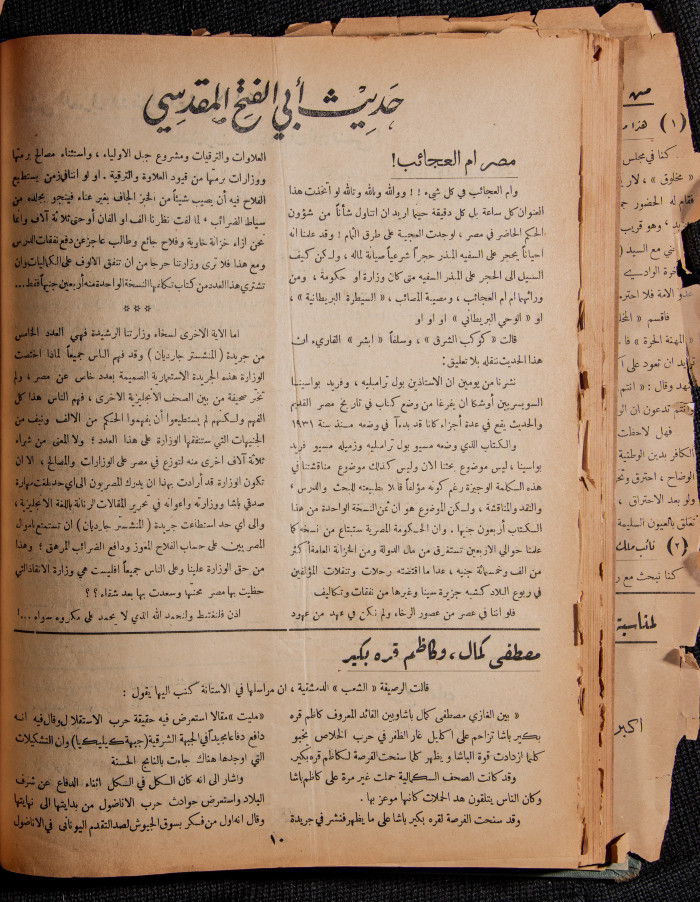 حديث أبي الفتح المقدسي
مصر ام العجائب!
وام العجائب في كل شيء !! ووالله وبالله وتالله لو أتخذت هذا
العنوان كل ساعة بل كل دقيقة حينما اريد ان اتناول شأناً من شؤون
الحكم الحاضر في مصر ، لوجدت العجيبة على طرق الثمام ! وقد علمنا انه
احياناً يحجر على السفيه المبذر حجراً شرعياً صيانة لماله ، ولكن كيف
السبيل الى الحجر على المبذر السفيه متى كان وزارة او حكومة ، ومن
ورائهما ام ام العجائب ، ومصيبة المصائب ، «السيطرة البريطانية» ،
او «الوحي البريطاني» او او او
قالت «كوكب الشرق» ، وسلفاً «ابشر» القاريء ان
هذا الحديث ننقله بلا تعليق :
نشرنا من يومين ان الاستاذين بول ترامبليه ، وفريد بواسينيا
السويسريين أوشكا ان يفرغا من وضع كتاب في تاريخ مصر القديم
والحديث يقع في عدة أجزاء كانا قد بدءآ في وضعه منذ سنة ١٩٣١
والكتاب الذي وضعه مسيو بول ترامبليه وزميله مسيو فريد
بواسينا ، ليس موضوع بحثنا الان وليس كذلك موضوع مناقشتنا في
هذه الكلمة الوجيزة رغم كونه مؤلفاً قابلا بطبيعته للبحث والدرس ،
والنقد والمناقشة ، ولكن الموضوع هو ان ثمن النسخة الواحدة من هذا
الكتاب أربعون جنيها . وان الحكومة المصرية ستبتاع من نسخه كما
علمنا حوالي الاربعين تستغرق من مال الدولة ومن الخزانة العامة أكثر
من الف وخمسمائة جنيه ، عدا ما اقتضته رحلات وتنقلات المؤلفين
في ربوع البلاد كشبه جزيرة سينا وغيرها من نفقات وتكاليف
فلو اننا في عصر من عصور الرخاء ولم نكن في عهد من عهود
العلاوات والترقيات ومشروع جبل الاولياء ، واستثناء مصالح برمتها
ووزارات برمتها من قيود العلاوة والترقية . او لو اننا في زمن يستطيع
الفلاح فيه أن يصيب شيئاً من الخبز الجاف بغير عناء فينجو بجلده من
سياط الضرائب ، لما لفت نظرنا الف او الفان أو حتى ثلاثة آلاف وانما
نحن ازاء خزانة خاوية وفلاح جائع وطالب عاجز عن دفع نفقات الدرس
ومع هذا فلا ترى وزارتنا حرجاً من ان تنفق الالوف على الكماليات وان
تشتري هذا العدد من كتاب تكلفها النسخة الواحدة منه أربعين جنيها فقط ...
***
اما الاية الاخرى لسخاء وزارتنا الرشيدة فهي العدد الخامس
من جريدة (المنشستر جارديان) وقد فهم الناس جميعاً لماذا اختصت
الوزارة هذه الجريدة الاستعمارية الصميمة بعدد خاص عن مصر ، ولم
تختر صحيفة من بين الصحف الانجليزية الاخرى ، فهم الناس هذا كل
الفهم ولكنهم لم يستطيعوا أن يفهموا الحكم من الالاف ونيف من
الجنيهات التي ستنفقها الوزارة على هذا العدد ؛ ولا المعنى من شراء
ثلاثة آلاف اخرى منه لتوزع في مصر على الوزارات والمصالح ، الا ان
تكون الوزارة قد أرادت بهذا ان يدرك المصريون الى اي حد بلغت مهارة
صدقي باشا ووزارته واعوانه في تحرير المقالات الرنانة باللغة الانجليزية ،
والى اي حد استطاعت جريدة (المنشستر جارديان) ان تستمتع باموال
المصريين على حساب الفلاح المعوز ودافع الضرائب المرهق ؛ وهذا
من حق الوزارة علينا وعلى الناس جميعاً افليست هي وزارة الانقاذ التي
حظيت بها مصر محنتها وسعدت بها بعد شقاء ؟ ؟
اذن فلنغتبط ولنحمد الله الذي لا يحمد على مكروه سواه ...!
مصطفى كمال ، وكاظم قره بكير
قالت الرصيفة «الشعب» الدمشقية ، ان مراسلها في الاستانة كتب اليها يقول :
«بين الغازي مصطفى كمال باشا وبين القائد المعروف كاظم قره
بكير باشا تزاحم على اكاليل غار الظفر في حرب الخلاص يخبو
كلما ازدادت قوة الباشا و يظهر كلما سنحت الفرصة لكاظم قره بكير.
وقد كانت الصحف الكمالية حملت غير مرة على كاظم باشا
وكان الناس يتلقون هذ الحملات كانها موعز بها .
وقد سنحت الفرصة لقره بكير باشا على ما يظهر فنشر في جريدة
«مليت» مقالا استعرض فيه حقيقة حرب الاستقلال وقال فيه انه
دافع دفاعا مجيداً في الجبهة الشرقية (جبهة كيليكيا) وان التشكيلات
التي اوجدها هناك جاءت بالنتائج الحسنة
واشار الى انه كان الكل في الكل اثناء الدفاع عن شرف
البلاد واستعرض حوادث حرب الاناضول من بدايتها الى نهايتها
وقال انه اول من فكر بسوق الجيوش لصد التقدم اليوناني في الاناضول
١٠
(١) هذا
كنا في مجلس
«مخلوق» ، لا
فقام له الحضور
، وهو قريب
مع السيد
الامة فلا
فاقسم
«المهنة الحرة»
ان تعود على
وقال : «انتم
تدعون ان
فهل لاحظت
الكافر بدين الوطنية
الوضاح ، احترق
ولو بعد الاحتراق ،
تعلق بالعيون السليمة
(٢) نائب
كنا نبحث مع
لمناسبة
اكبر